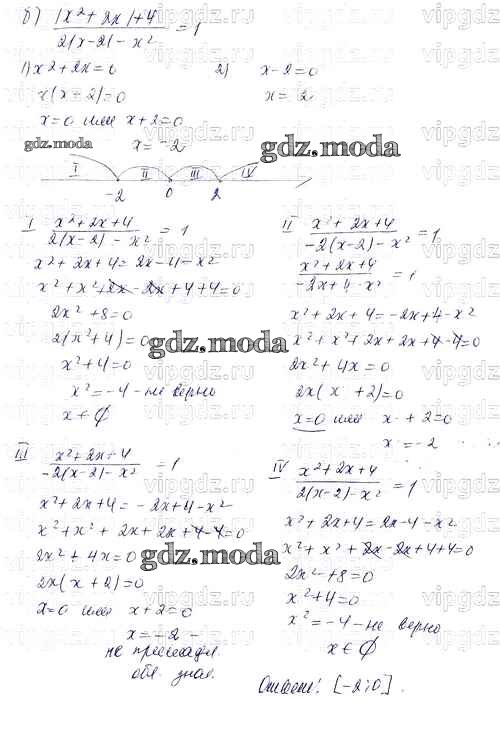 б) |x² + 2x| + 4
2|x-2| - x² = 1
1) x² + 2x = 0 2) x - 2 = 0
x(x + 2) = 0 x = 2
x = 0 или x + 2 = 0
x = -2
gdz.moda
gdz.moda
I II III IV
-2 0 2
I x² + 2x + 4
2(x-2) - x² = 1
x² + 2x + 4 = 2x - 4 - x²
x² + x² + 2x - 2x + 4 + 4 = 0
2x² + 8 = 0
2(x² + 4) = 0
x² + 4 = 0
x² = -4 - не верно
x ∈ ∅
II x² + 2x + 4
-2(x-2) - x² = 1
x² + 2x + 4
-2x + 4 - x² = 1
x² + 2x + 4 = -2x + 4 - x²
x² + x² + 2x + 2x + 4 - 4 = 0
2x² + 4x = 0
2x(x + 2) = 0
x = 0 или x + 2 = 0
x = -2
gdz.moda
III x² + 2x + 4
-2(x-2) - x² = 1
x² + 2x + 4 = -2x + 4 - x²
x² + x² + 2x + 2x + 4 - 4 = 0
2x² + 4x = 0
2x(x + 2) = 0
x = 0 или x + 2 = 0
x = -2 -
не
IV x² + 2x + 4
2(x-2) - x² = 1
x² + 2x + 4 = 2x - 4 - x²
x² + x² + 2x - 2x + 4 + 4 = 0
2x² + 8 = 0
x² + 4 = 0
x² = -4 - не верно
x ∈ ∅
gdz.moda
Ответ: [-2; 0].
vipgdz.ru